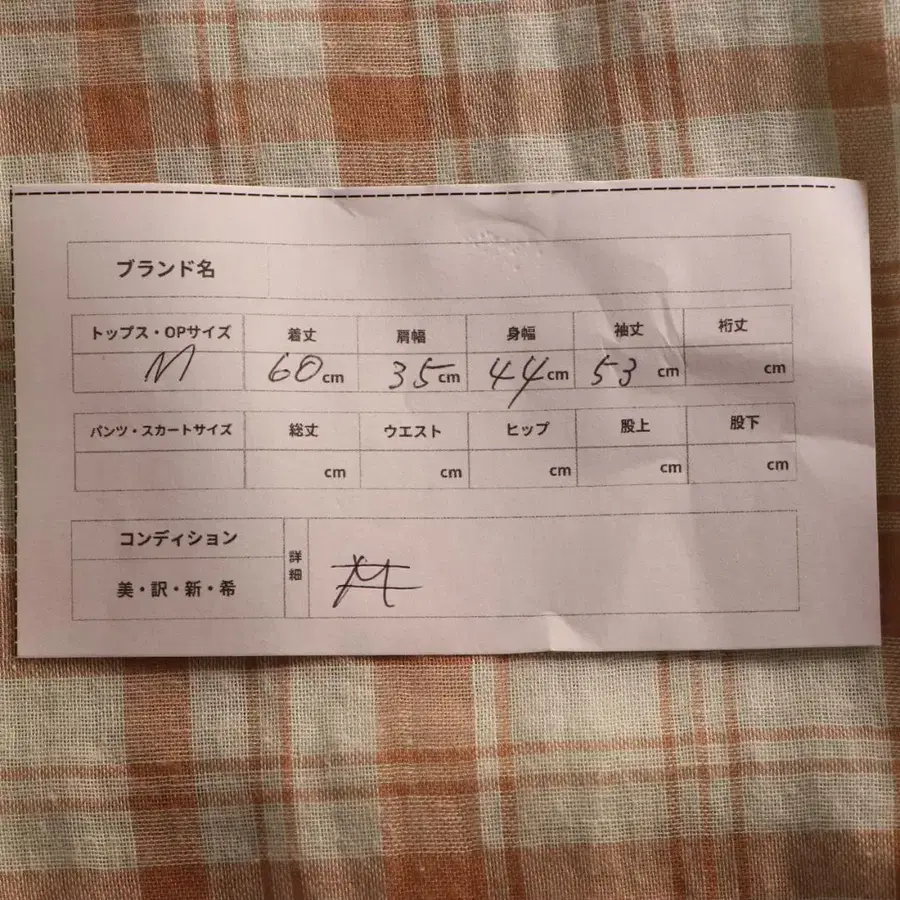 ブランド名
トップス・OPサイズ 着丈 肩幅 身幅 袖丈 裄丈
M 60cm 35cm 44cm 53cm cm
パンツ・スカートサイズ 総丈 ウエスト ヒップ 股上 股下
cm cm cm cm cm
コンディション
詳細
美・訳・新・希